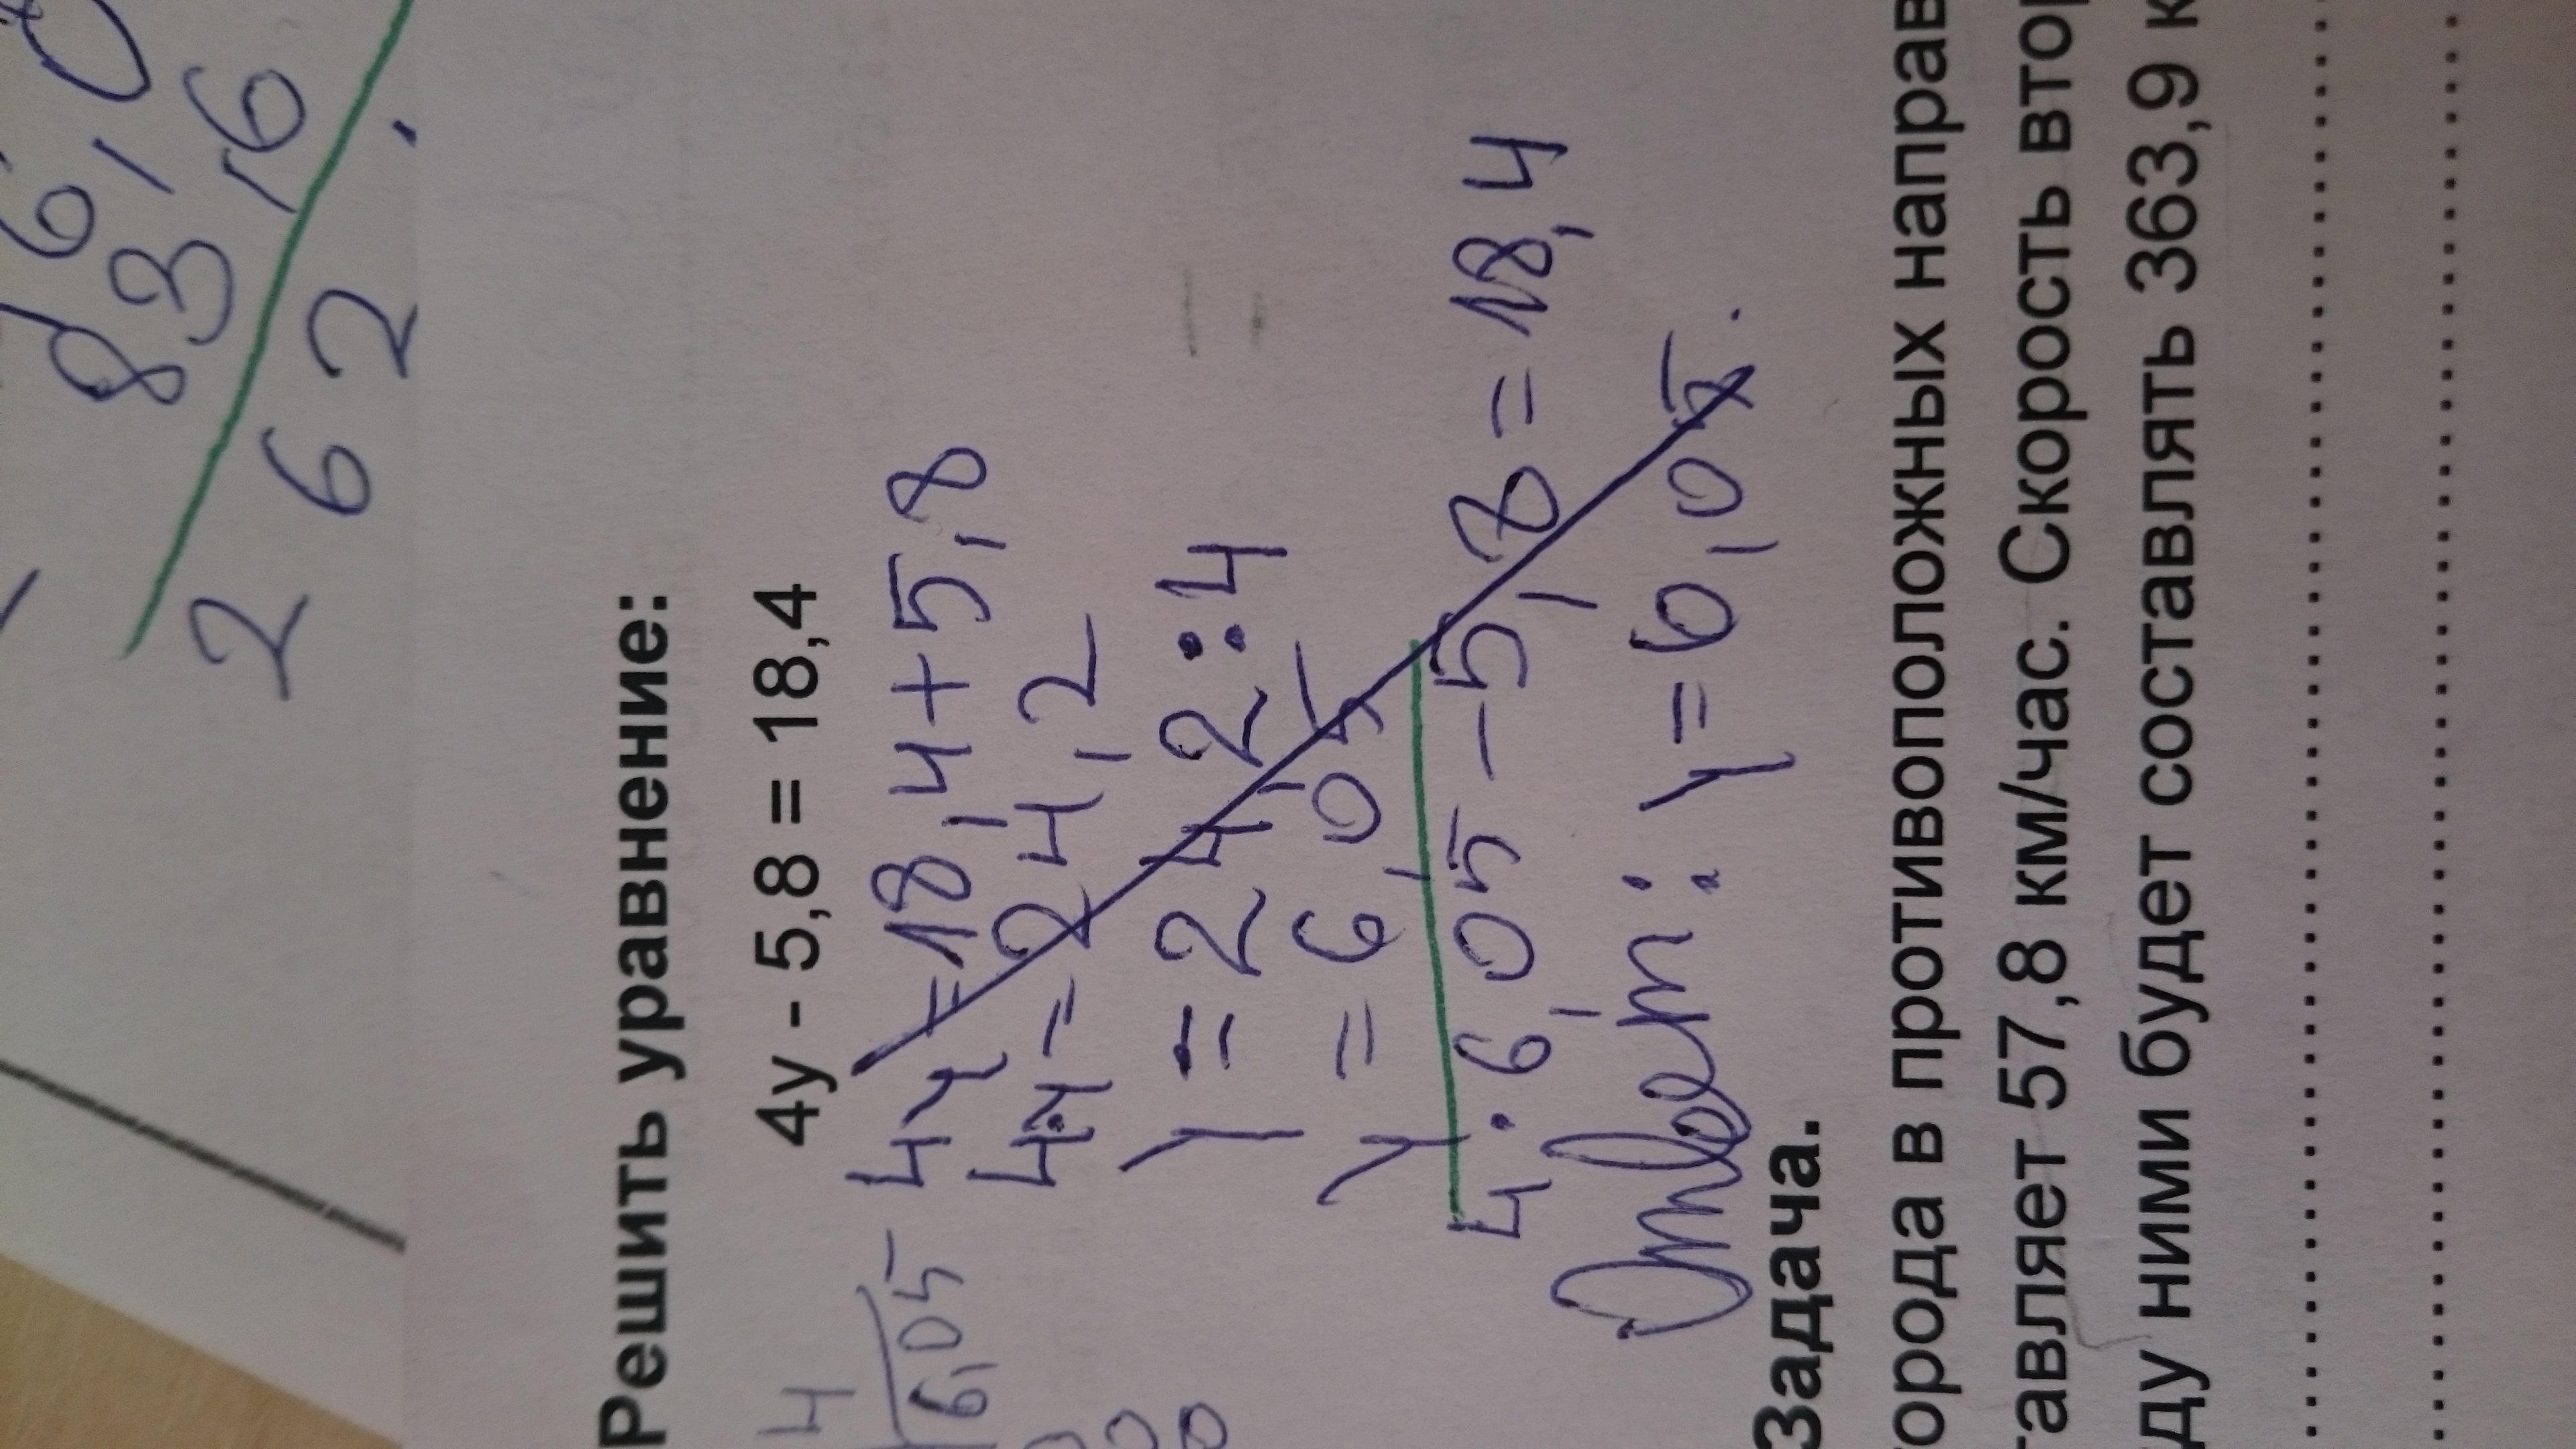 6,0
83,6
262.
Решить уравнение:
4у - 5,8 = 18,4
4y = 18,4 + 5,8
4y = 24,2
y = 24,2 : 4
y = 6,05
4 · 6,05 - 5,8 = 18,4
Ответ: y = 6,05.
4
6,05
Задача.
орода в противоположных направ
тавляет 57,8 км/час. Скорость втор
ду ними будет составлять 363,9 к